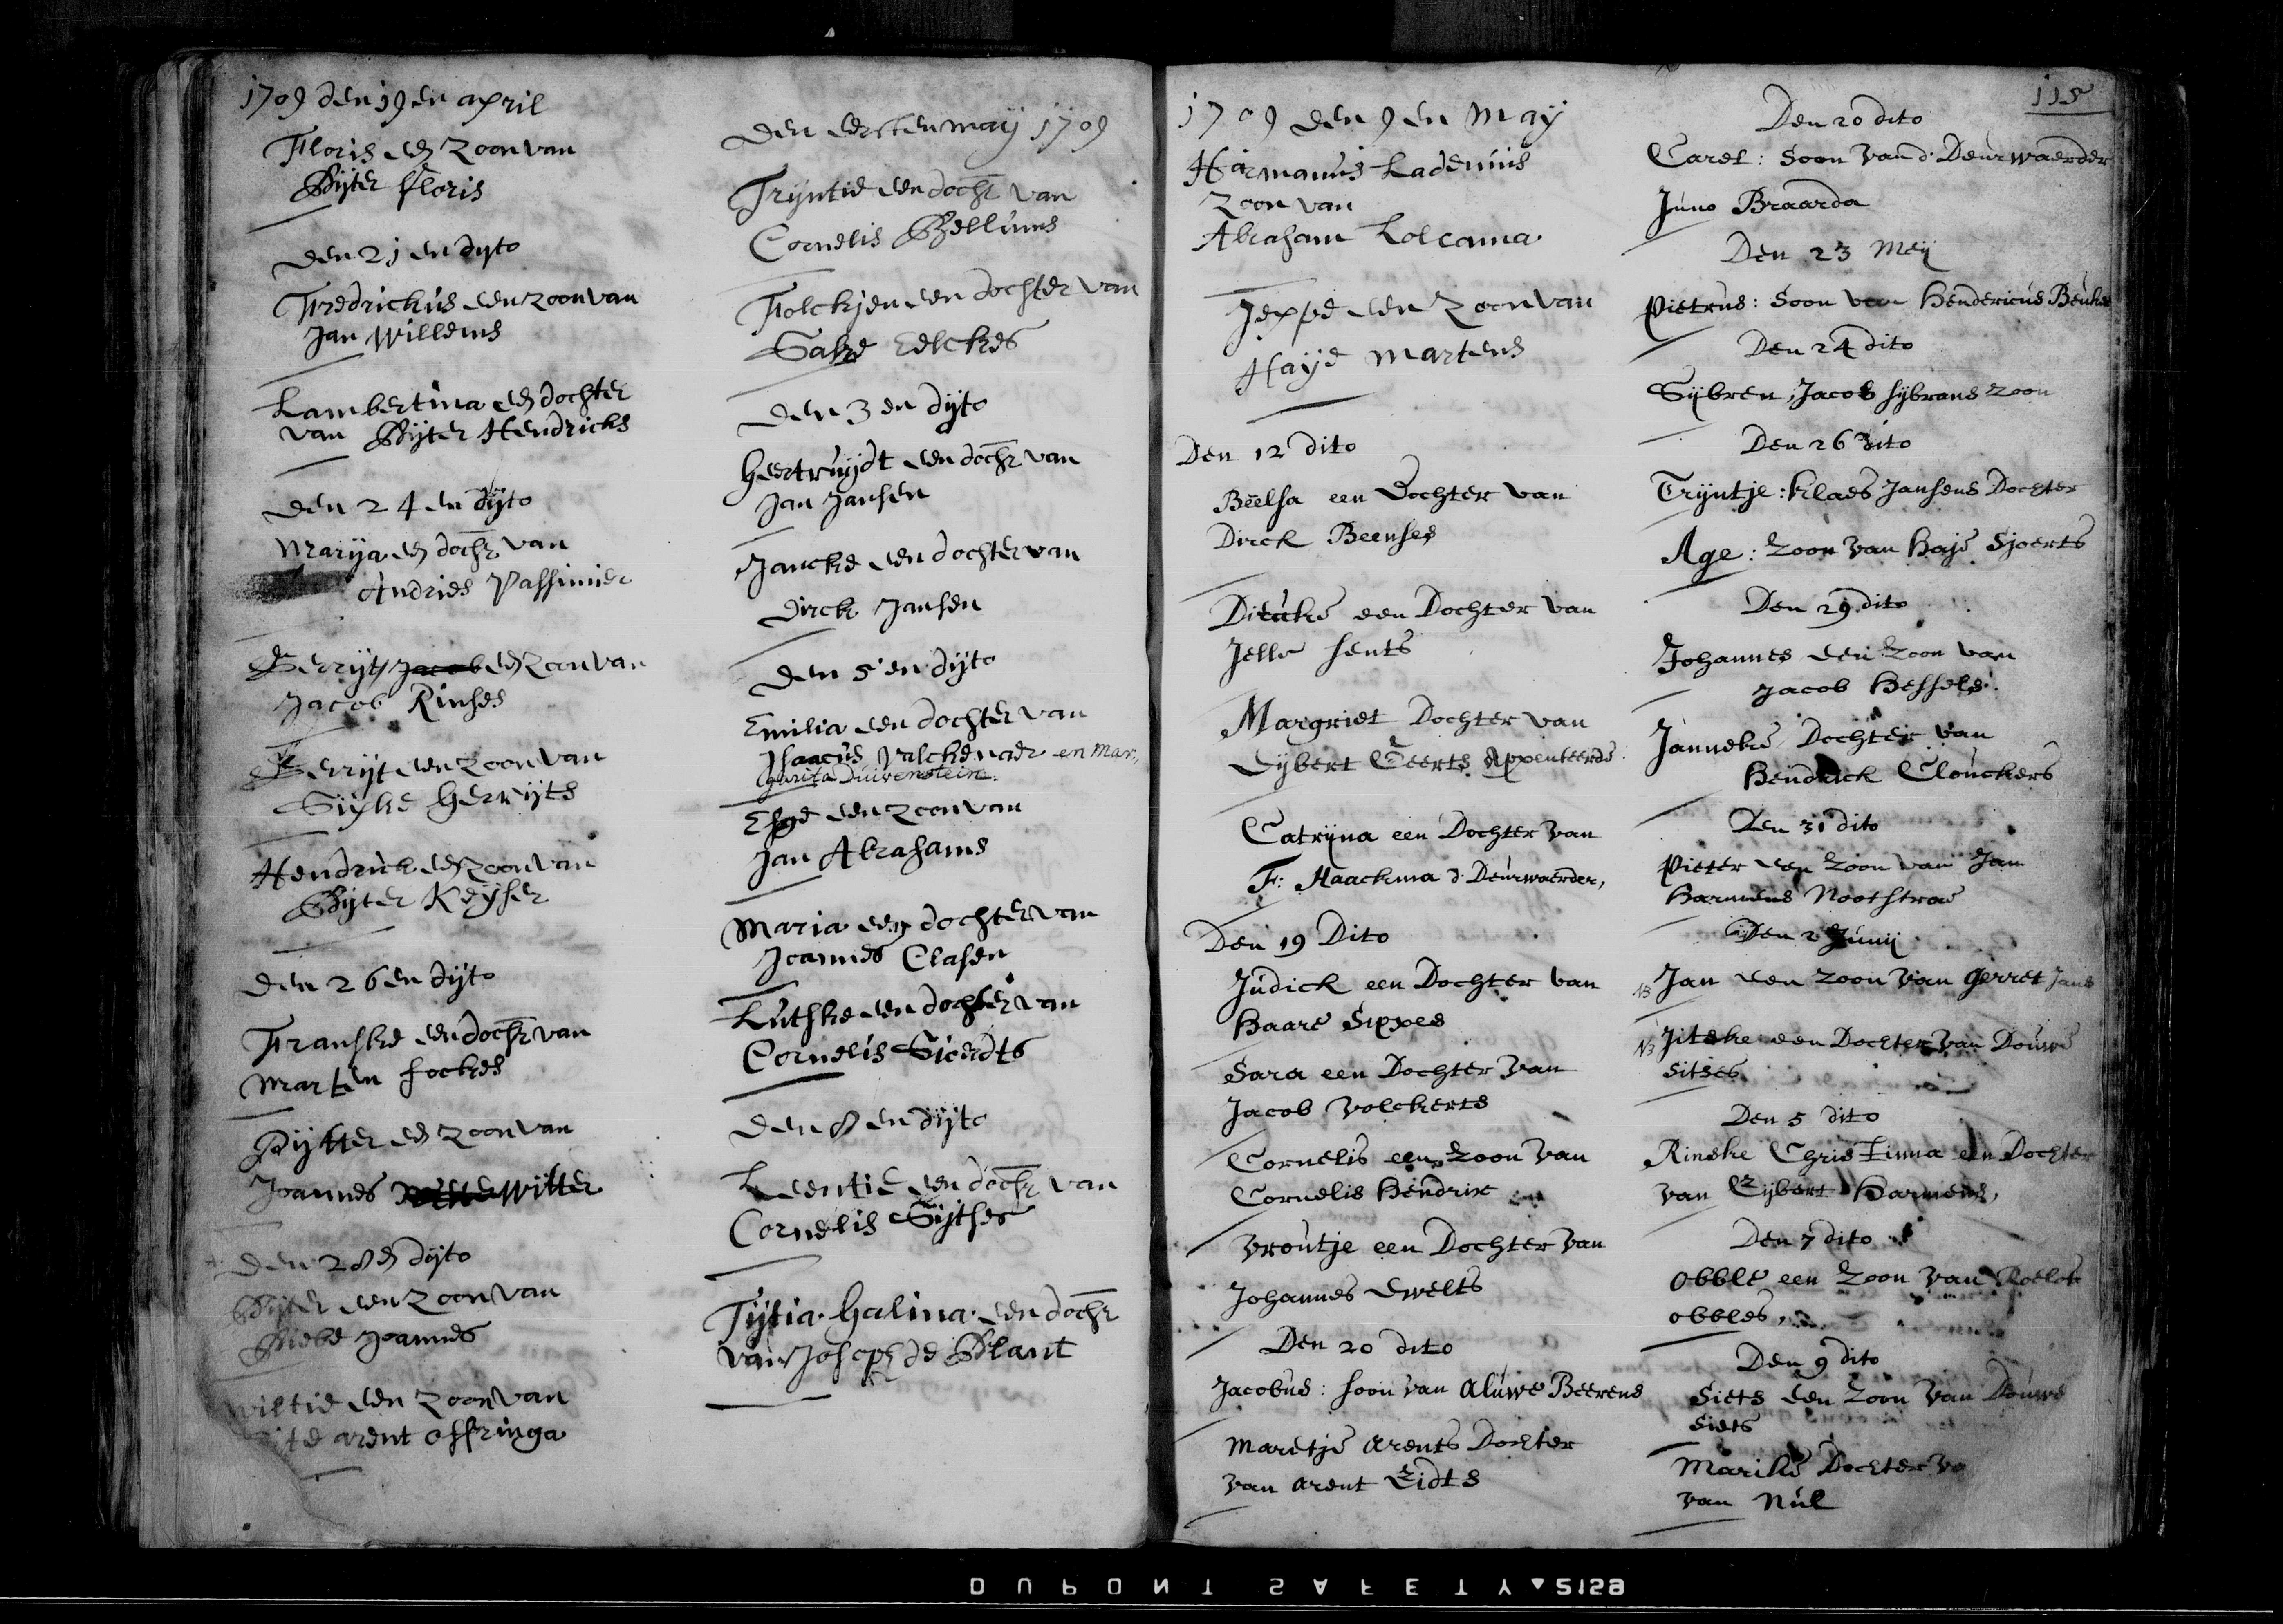 1709 den 19 en april
Floris een Zoon van
Pyter floris
den 21 en dyto
Fredrickus een zoon van
Jan Willems
Lambertina een dochter
van Pyter Hendricks
den 24 en dyto
Marija een dochr van
Andries Passinier
Gerryt Jacob een zoon van
Jacob Rinses
Gerryt een zoon van
Sipke Gerrijts
Hendrick een zoon van
Pyter Keyser
den 26 en dyto
Franske een dochr van
Marten fockes
Pytter een zoon van
Joannes Wytter
den 28 en dyto
Pyter een zoon van
Wiebe Joannes
Wiltie een zoon van
arent offringa
den eersten may 1709
Tryntie een dochr van
Cornelis Bellums
Folckjen een dochter van
Sakes Eelckes
den 3 en dyto
Geertruijdt een dochr van
Jan Jansen
Jancke een dochter van
Dirck Jansen
den 5 en dyto
Emilia een dochter van
Isaacus Valckenaer en Mar,,
garita Duivenstein.
Esge een zoon van
Jan Abrahams
Maria een dochter van
Joannes Clasen
Lutske een dochter van
Cornelis Sioerdts
den 8 en dyto
Leentie een dochr van
Cornelis Sijtses
Tijtia Galina een dochr
van Joseph de Plant
1709 den 9 en May
Harmanus Ladenius
Zoon van
Abraham Lolcama
Jeppe een Zoon van
Haye Martens
Den 12 dito
Beelsa een Dochter van
Dirck Beenses
Dieuke een Dochter van
Jelle Sents
Margriet Dochter van
Eybert Geerts Appenteerde
Catrijna een Dochter van
F: Haackma d: Deurwaerder,
Den 19 Dito
Judick een Dochter van
Haare Sippes
Sara een Dochter van
Jacob Volckerts
Cornelis een Zoon van
Cornelis Hendrix
Vroutje een Dochter van
Johannes Ewelts
Den 20 dito
Jacobus: soon van Aluwe Beerens
Maretje Arents Dochter
van Arent Eidts
115
Den 20 dito
Carel: Soon van d: Deurwaerder
Juno Braarda
Den 23 Meij
Pietrus: Soon van Hendericus Beuke
Den 24 dito
Sijbren, Jacob sijbrans zoon
Den 26 dito
Trijntje: Klaes Jansens Dochter
Age: Zoon van Haje Sjoerts
Den 29 dito
Johannes een Zoon van
Jacob Hessels.
Janneke Dochter van
Hendrick Clouckers
Den 31 dito
Pieter een Zoon van Jan
Harmens Nootstrae
Den 2 Junij
NB Jan een Zoon van Gerret Jans
NB Jitske een Dochter van Douwe
Sitses
Den 5 dito
Rinske Christinna een Dochter
van Eijbert Harmens,
Den 7 dito
Obble een Zoon van Roelof
obbles,
Den 9 dito
Siets een Zoon van Douwe
Siets
Marike Dochter va
van Nul
DUPONT SAFETY 5128